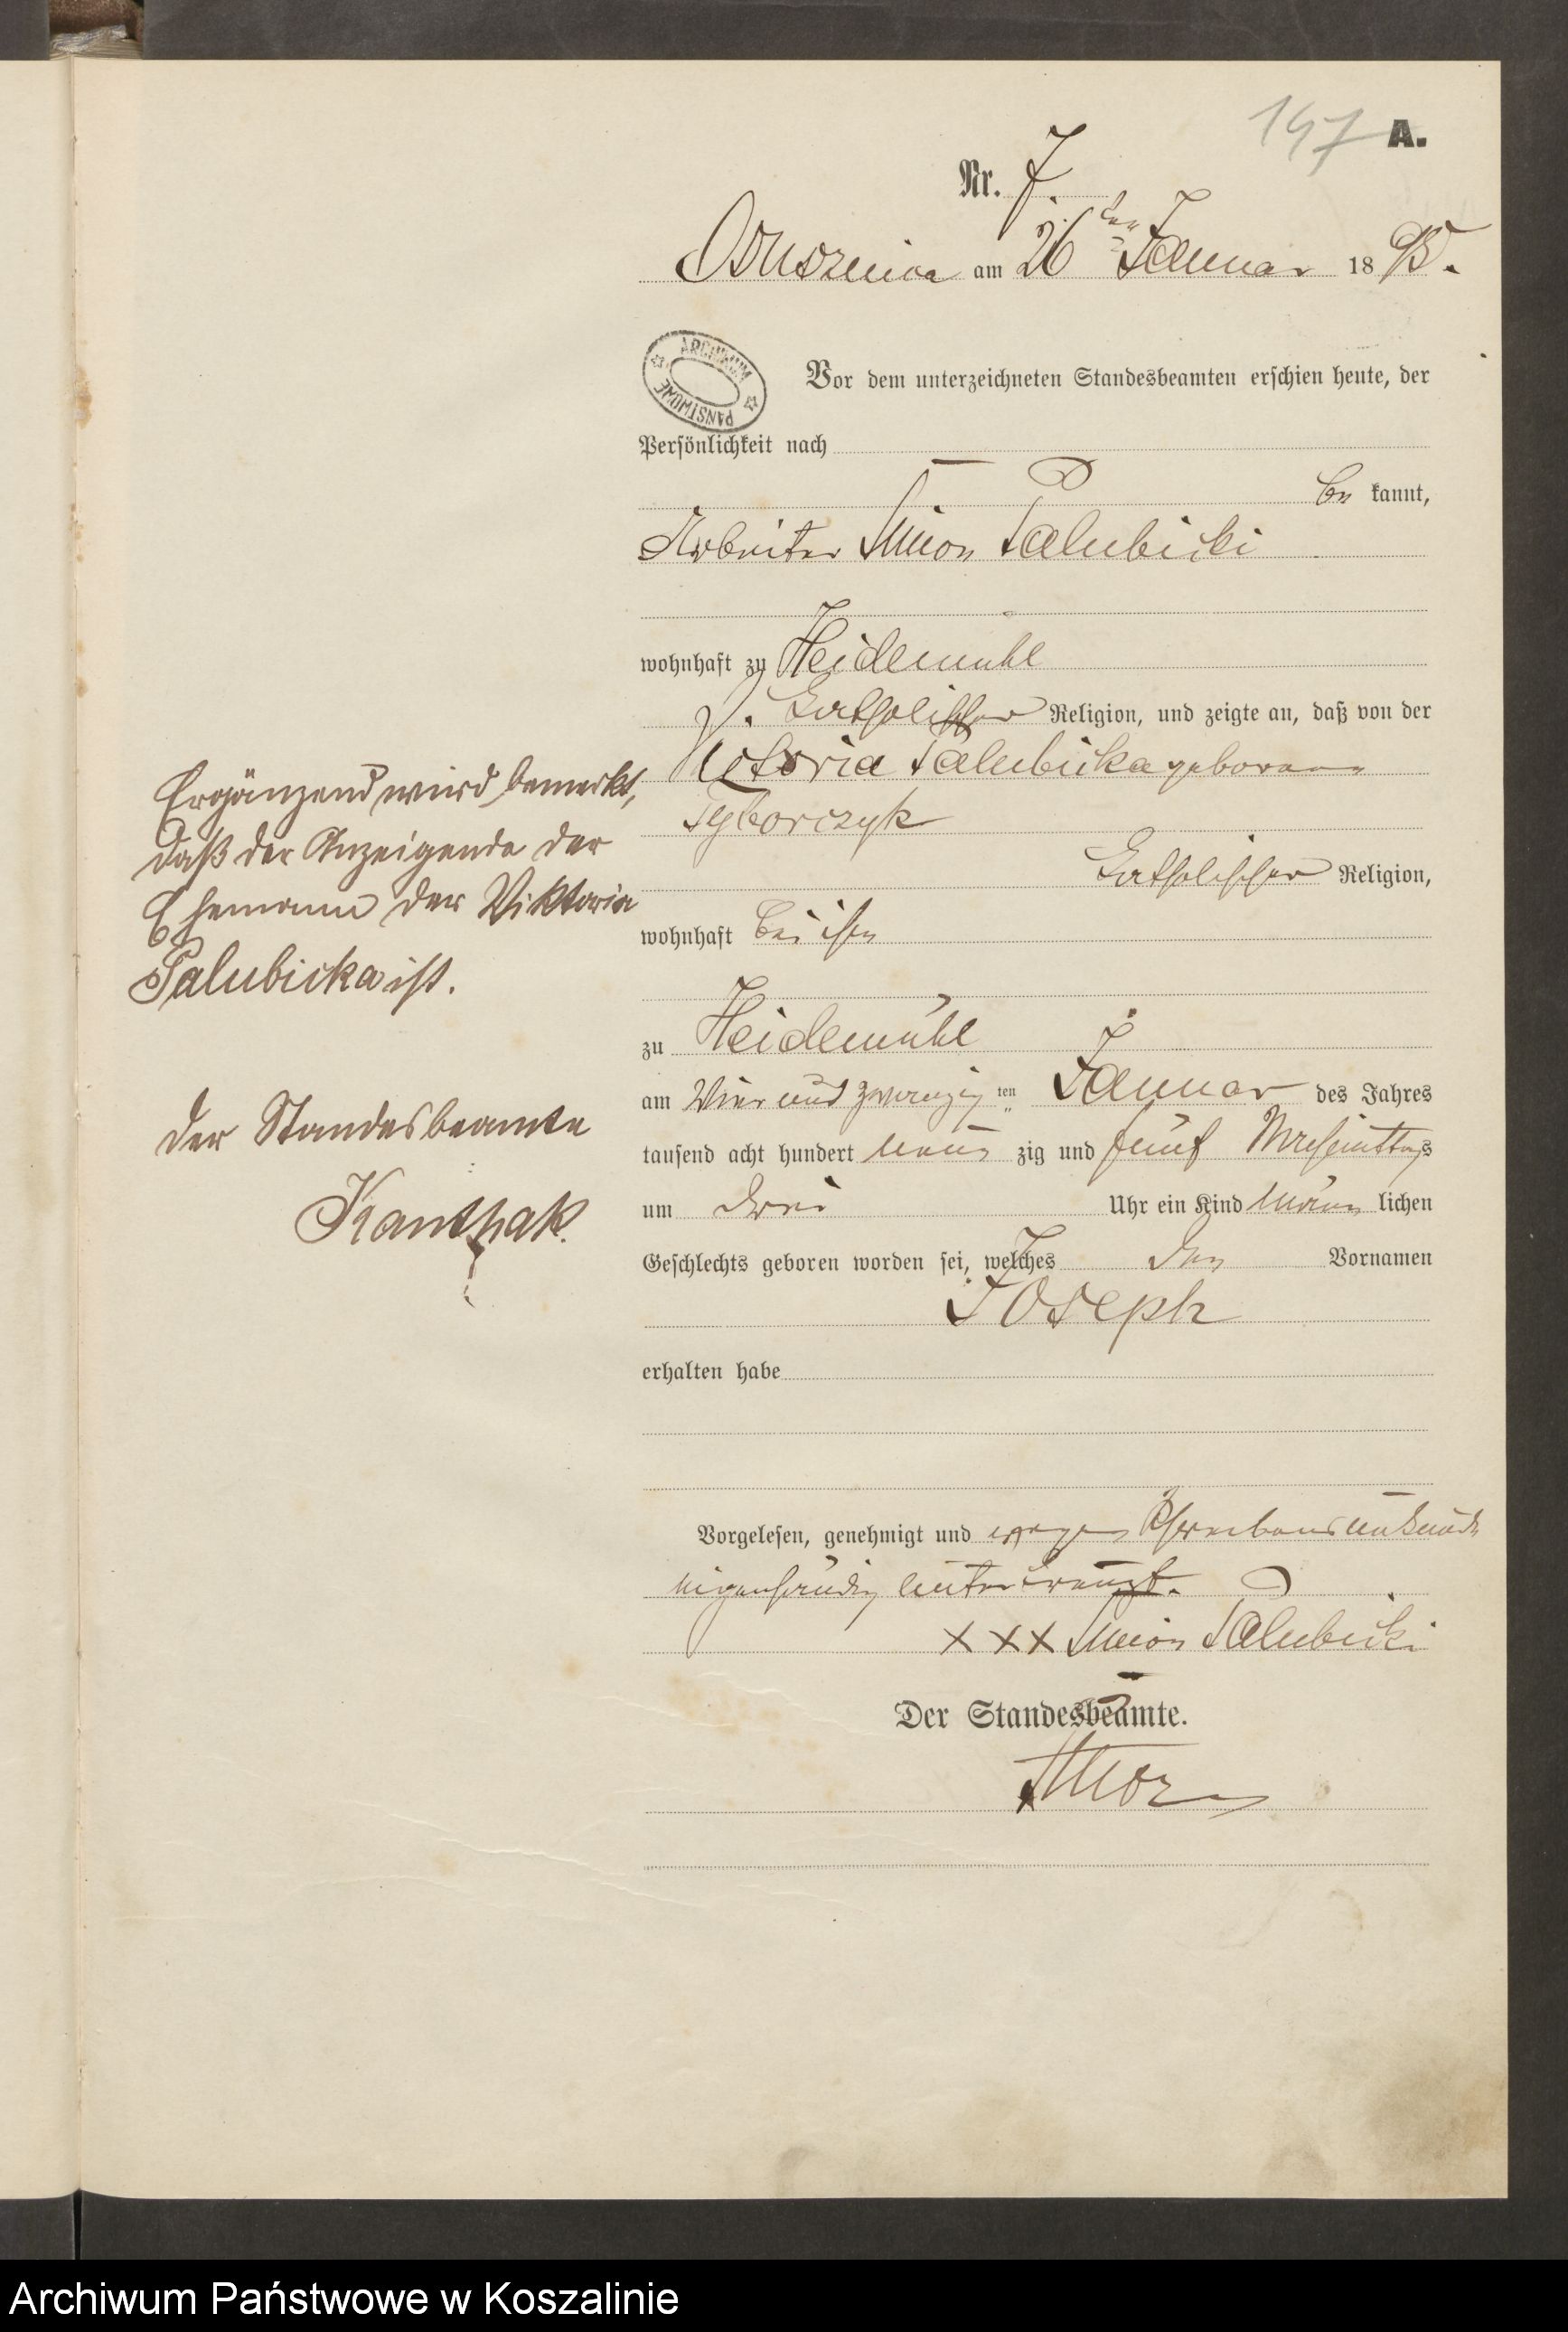 147 A.
Nr. 7.
Ossuszenica am 26ten Januar 1895.
ARCHIWUM PAŃSTWOWE
Vor dem unterzeichneten Standesbeamten erschien heute, der
Persönlichkeit nach
be kannt,
Arbeiter Simon Palubicki
wohnhaft zu Heidemühl
katholischer Religion, und zeigte an, daß von der
Victoria Palubicka geborene
katholischer Religion,
wohnhaft bei ihm
zu Heidemühl
am Vier und zwanzig ten Januar des Jahres
tausend acht hundert neun zig und fünf Nachmittags
um drei Uhr ein Kind männ lichen
Geschlechts geboren worden sei, welches den Vornamen
Joseph
erhalten habe
Vorgelesen, genehmigt und wegen Schreibensunkunde
eigenhändig unterkreuzt.
XXX Simon Palubicki
Der Standesbeamte.
Ergänzend wird bemerkt,
daß der Anzeigende der
Ehemann der Viktoria
Palubicka ist.
Der Standesbeamte
Kanthak.
Archiwum Państwowe w Koszalinie